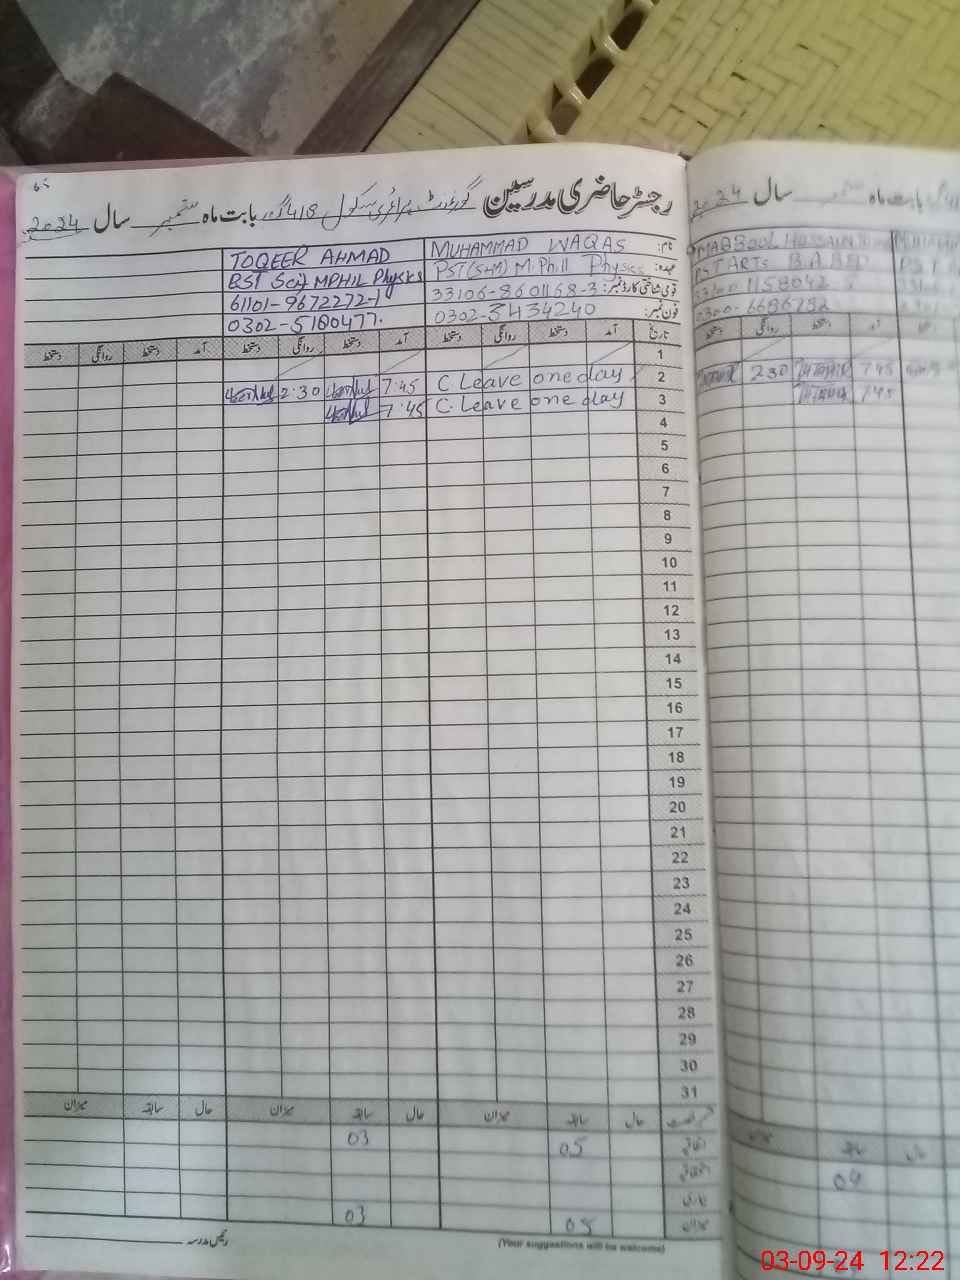 65
رجسٹر حاضری مدرسین گورنمنٹ پرائمری سکول 418 گ ب بابت ماہ ستمبر سال 2024
نام: MUHAMMAD WAQAS TOQEER AHMAD
عہدہ: PST(S+M) M.Phill Physics EST Sci) MPHIL Physics
قومی شناختی کارڈ نمبر: 33106-8601168-3 61101-9672272-1
فون نمبر: 0302-5434240 0302-5180477.
تاریخ آمد دستخط روانگی دستخط آمد دستخط روانگی دستخط آمد دستخط روانگی دستخط
1
2 C Leave one day 7:45 2:30
3 C. Leave one day 7:45
4
5
6
7
8
9
10
11
12
13
14
15
16
17
18
19
20
21
22
23
24
25
26
27
28
29
30
31
حال سابقہ میزان حال سابقہ میزان حال سابقہ میزان
اتفاقیہ 05 03
میزان 05 03
رئیس مدرسہ
(Your suggestions will be welcome)
بابت ماہ سال 2024
MAQBOOL HUSSAIN
PST ARTS B.A BED
1158042
0300-6686782
آمد دستخط روانگی دستخط
7:45 2:30
7:45
حال سابقہ میزان
04
03-09-24 12:22